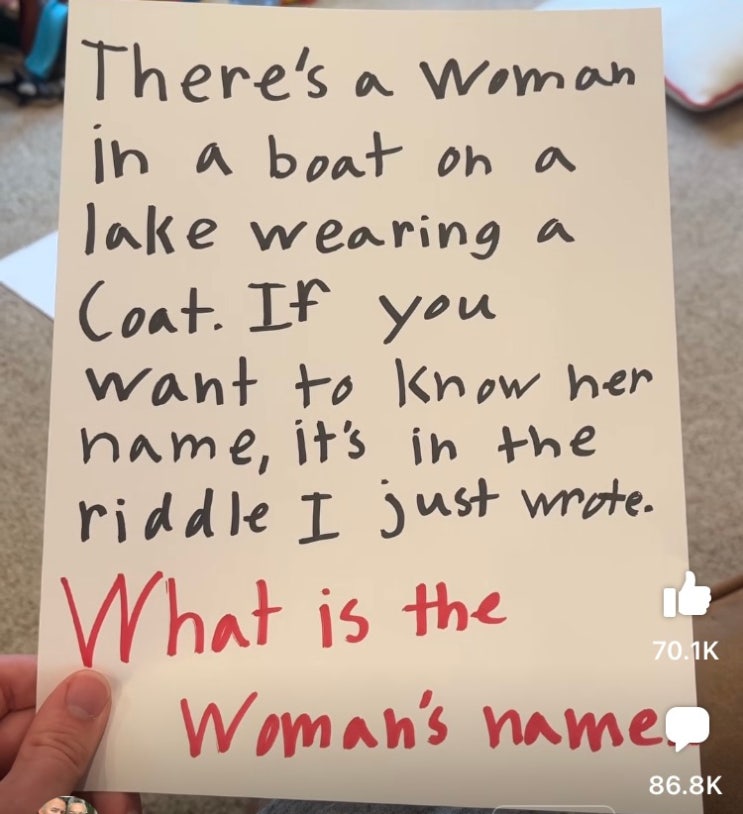 There's a Woman
in a boat on a
lake wearing a
Coat. If you
want to know her
name, it's in the
riddle I just wrote.
What is the
Woman's name.
70.1K
86.8K